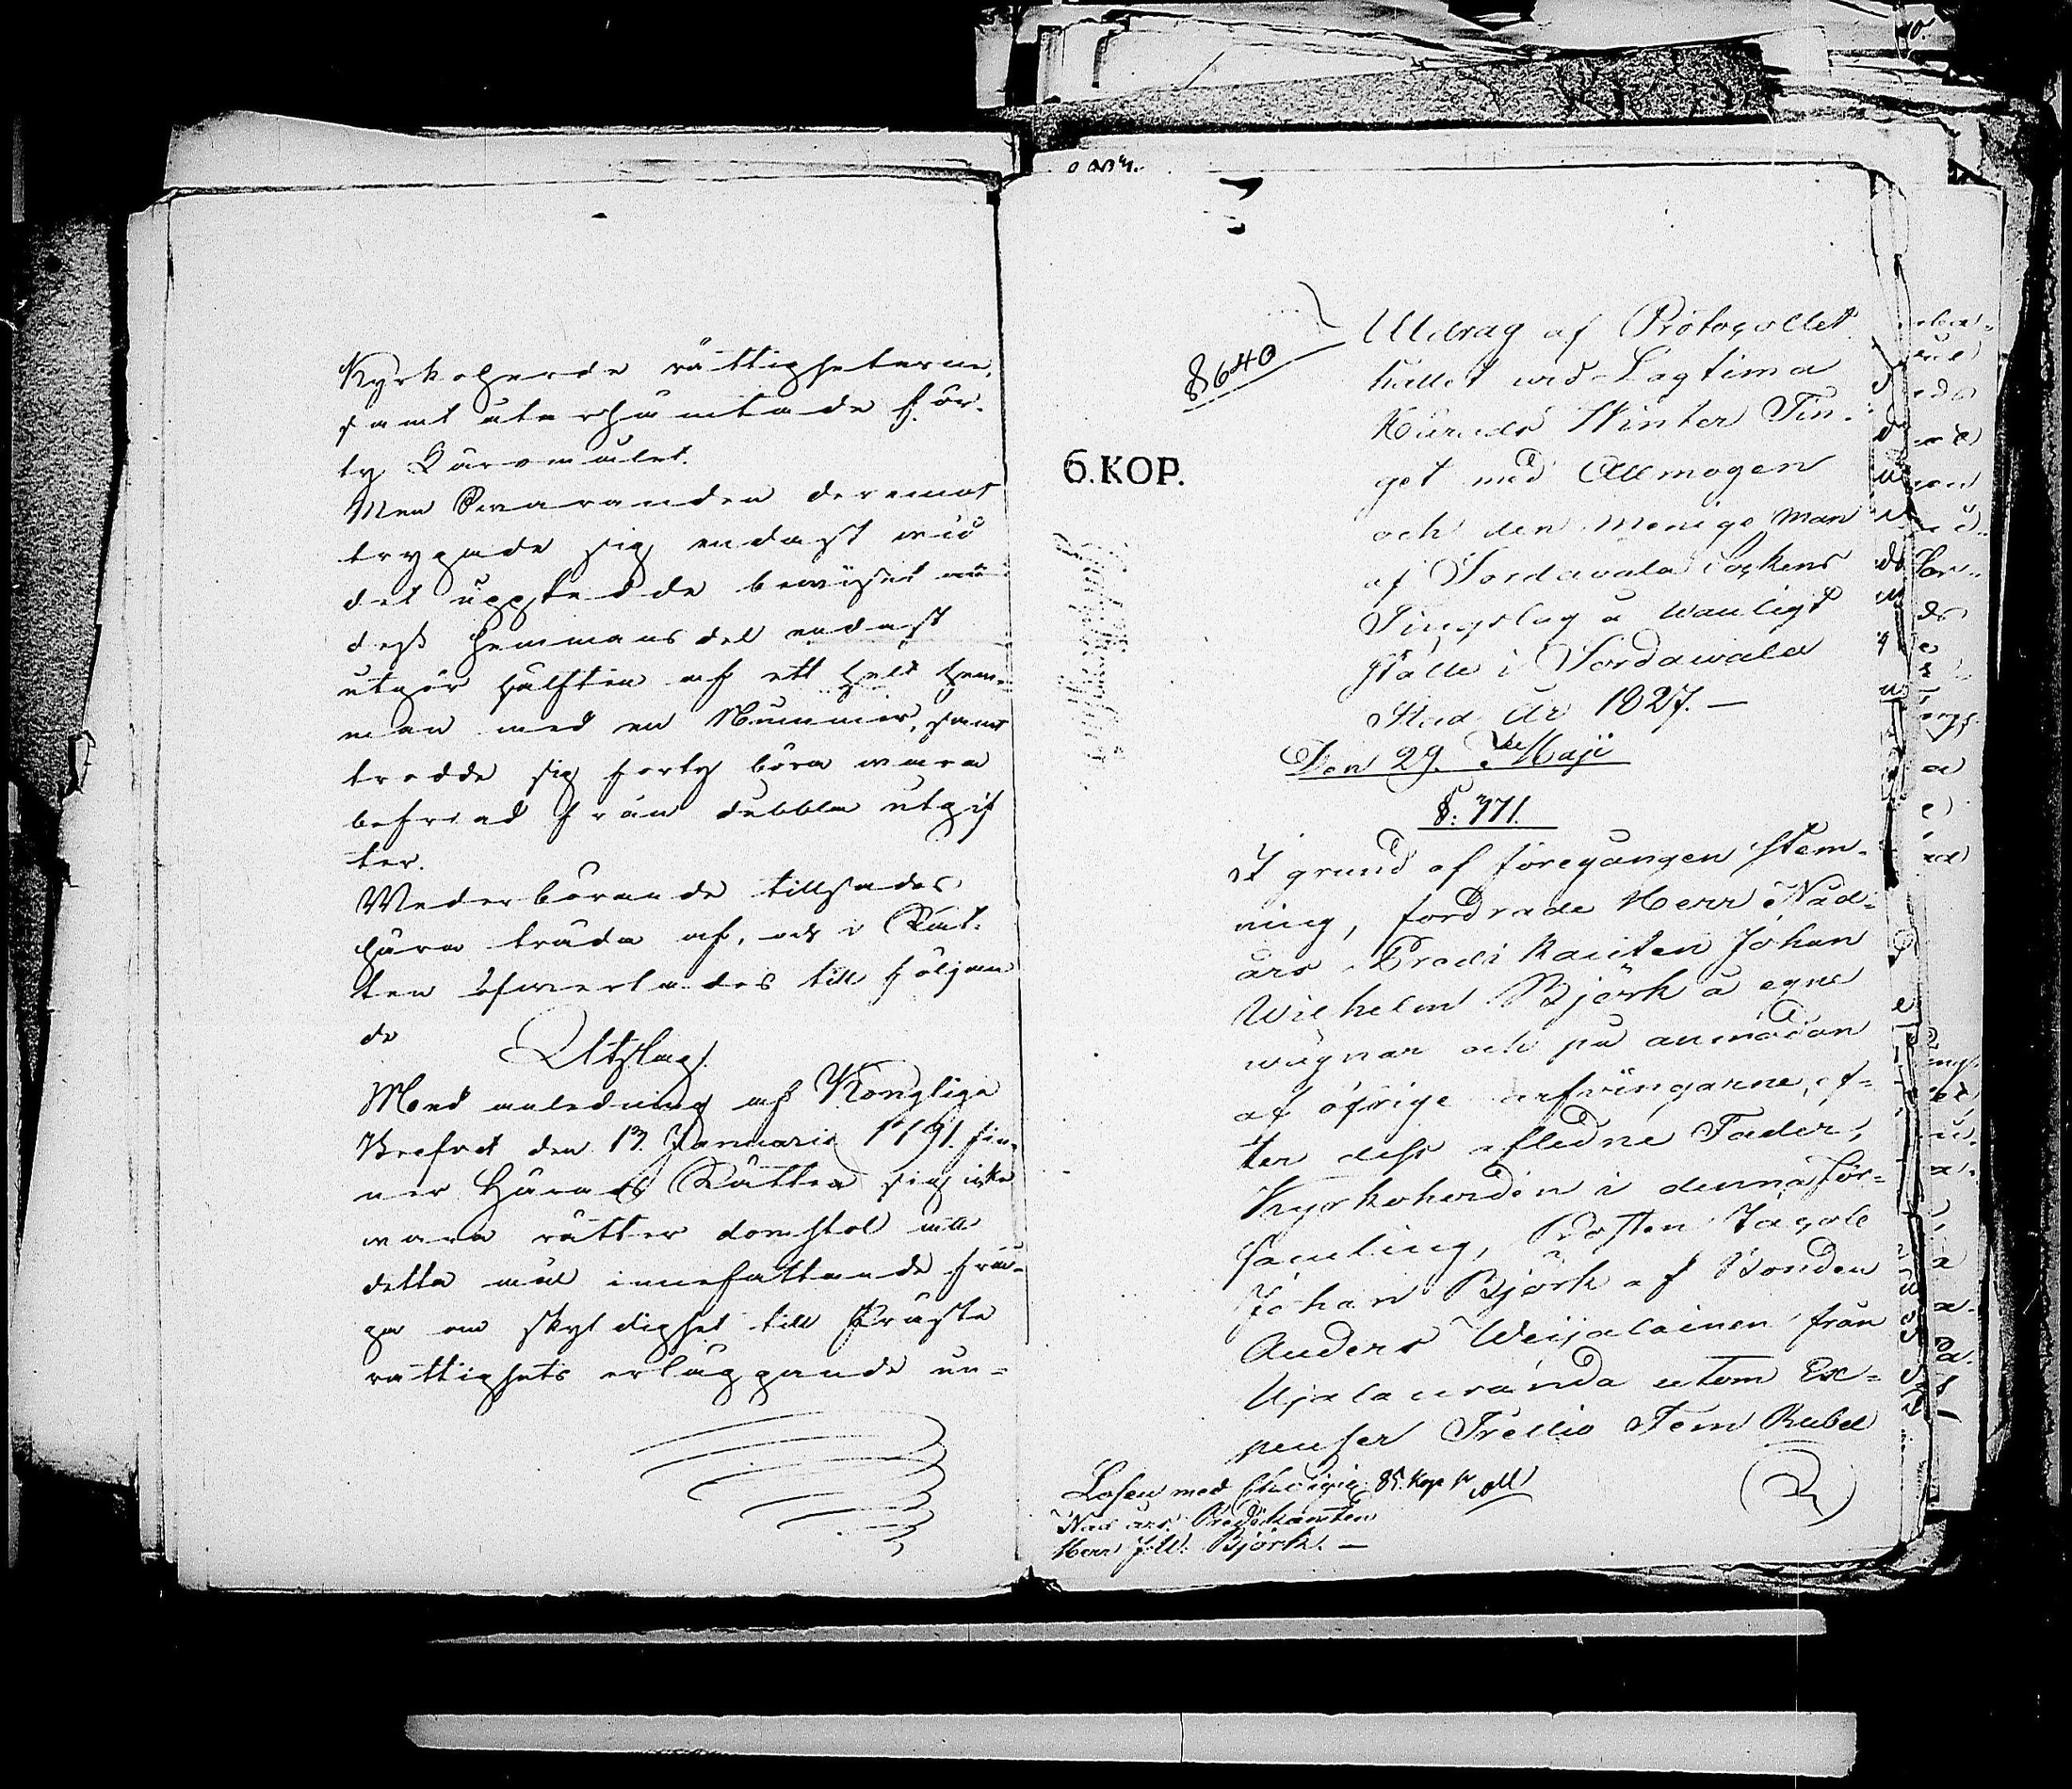 Kyrkoherde rättigheterne,
samt återhämtade för
ty Käromålet.
Men Swaranden deremot
trygade sig endast wid
det uppstedde bewiset att
dess hemmansdel endast
utgör hälften af ett helt hem-
man med en Nummer, samt
trodde sig forty böra wara
befriad från dubbla utgif
ter.
Wederbörande tillsades
härå träda af, och i Rät-
ten öfwerlades till följan
de
Utslag.
Med anledning af Konglige
Brefvet den 13. Januarii 1791. fin-
ner Härads Rätten sig icke
wara rätter domstol uti
detta mål innefattande frå-
ga om skyldighet till Präste
rättighets erläggande un-
8640
6. KOP.
Utdrag af Protocollet
hållet wid Lagtima
Härads Winter Tin-
get med Allmogen
och den menige man
af Sordavala Sockens
Tingslag å wanligt
ställe i Sordawala
Stad År 1827. —
Den 29. Maji
§. 371.
I grund af föregången stem-
ning, fordrade Herr Nåd-
års Predikanten Johan
Wilhelm Björk å egne
wägnar och på anmodan
af öfrige arfwingarne, ef-
ter dess afledne Fader,
Kyrkoherden i denna för-
samling, Prosten Jacob
Johan Björk af Bonden
Anders Weijalainen från
utom Ex-
penser Trettio Fem Rubel
Losen med 85. Kop
Nåd års Predikanten
Herr J. W. Björk. —